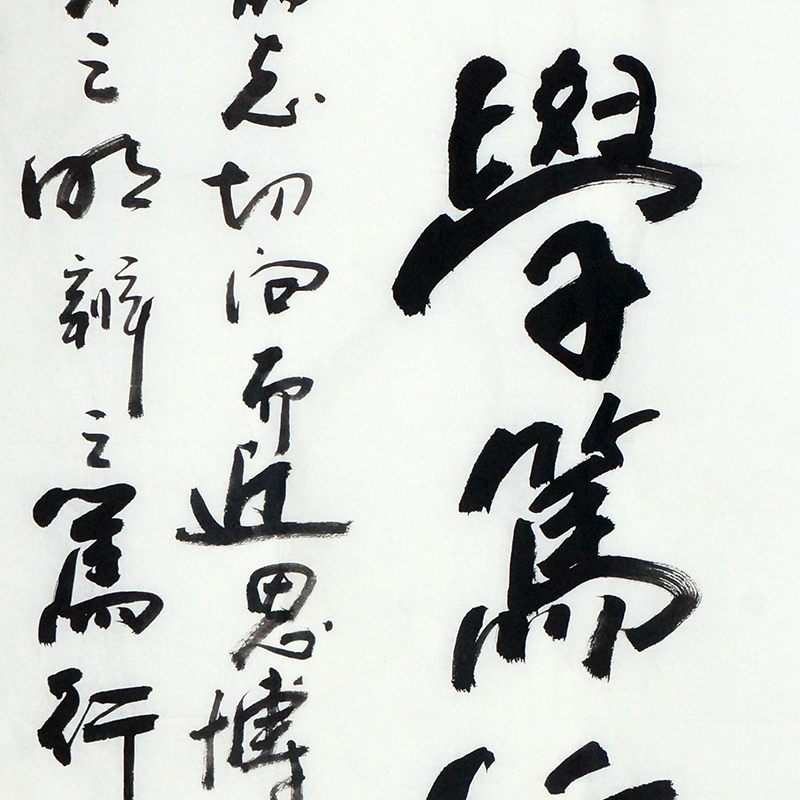 學篤
志切問而近思博
之明辨之篤行